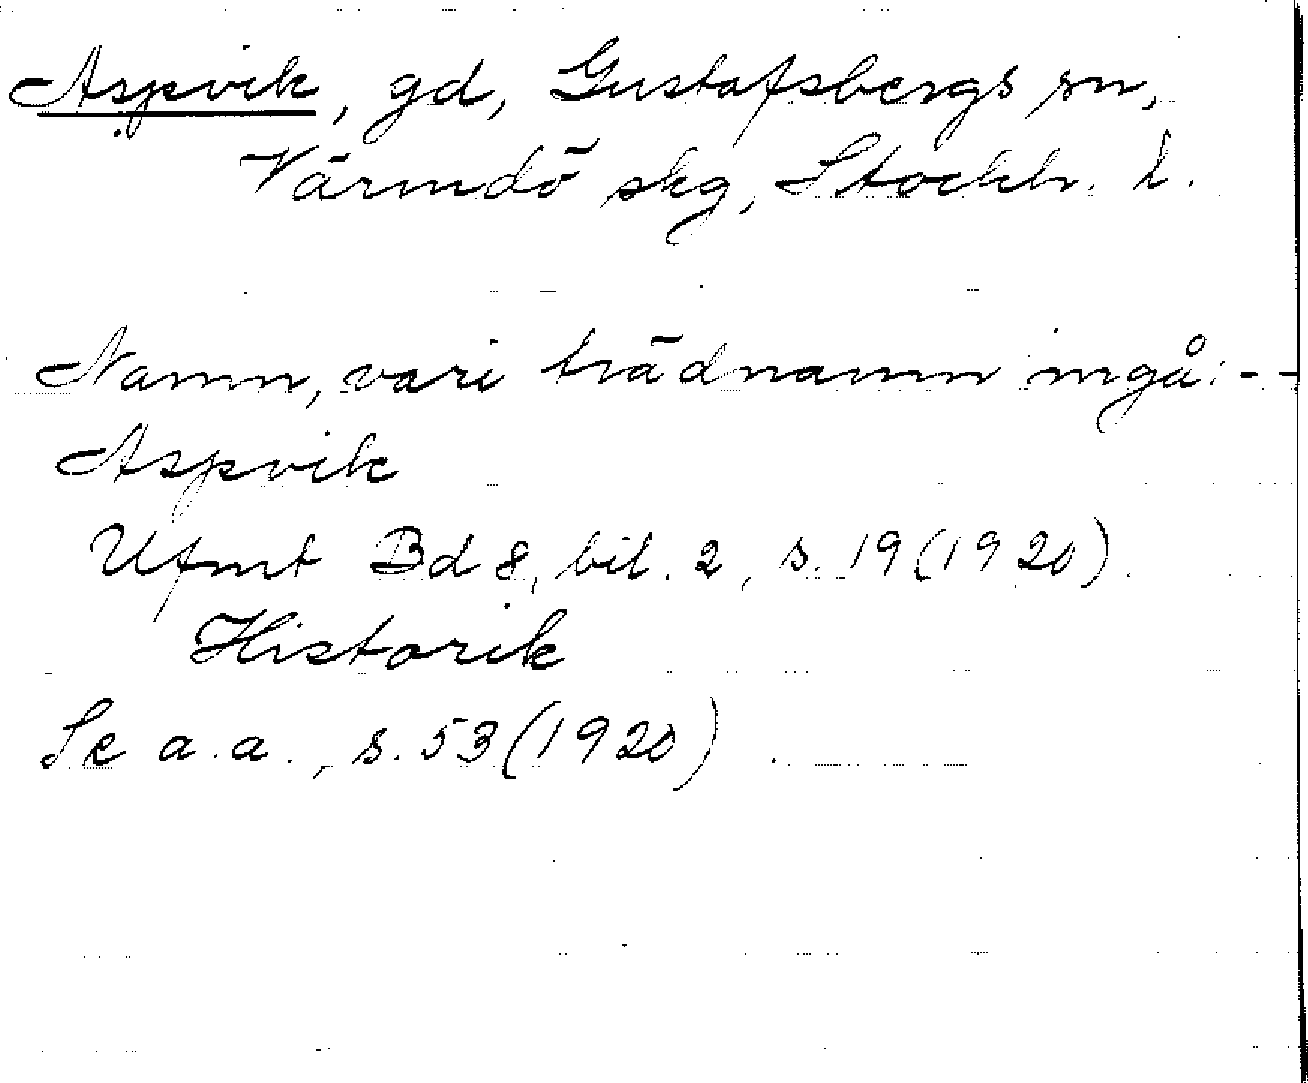 Aspvik, gd, Gustafsbergs sn,
Värmdö skg, Stockh. l.
Namn, vari trädnamn ingå: - -
Aspvik
Ufmt Bd 8, bil. 2, s. 19 (1920).
Historik
Se a.a., s. 53 (1920)